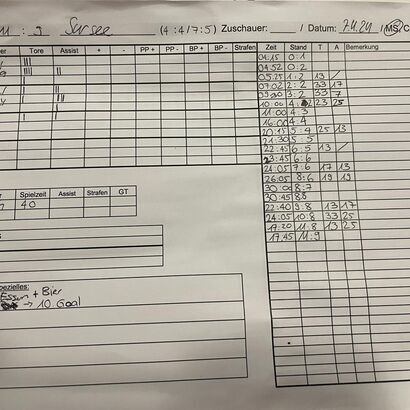 11 : 9 Sursee (4:4/7:5) Zuschauer: __ / Datum: 7.4.24 MS/C
Tore Assist + - PP + PP - BP + BP - Strafen
Zeit Stand T A Bemerkung
04:15 0:1
04:52 0:2
05:25 1:2 13 /
07:02 2:2 33 17
09:30 3:2 33 7
10:00 4:2 23 25
11:00 4:3
16:00 4:4
20:15 5:4 25 13
21:30 5:5
22:45 6:5 13 /
23:45 6:6
24:05 7:6 17 13
26:05 8:6 19 19
30:00 8:7
30:45 8:8
22:40 9:8 13 17
24:05 10:8 33 25
17:20 11:8 13 25
17:45 11:9
Spielzeit Assist Strafen GT
40
pezielles:
Essen + Bier
→ 10. Goal